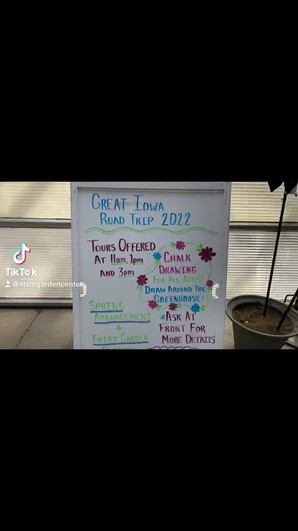 GREAT IOWA
ROAD TRIP 2022
TOURS OFFERED
AT 11am, 1pm
AND 3pm
CHALK
DRAWING
FOR ALL AGES!
DRAW AROUND THE
GREENHOUSE!
SPRING
ARRANGEMENT
&
FAIRY GARDEN
*ASK AT
FRONT FOR
MORE DETAILS
TikTok
@stamgardencenter